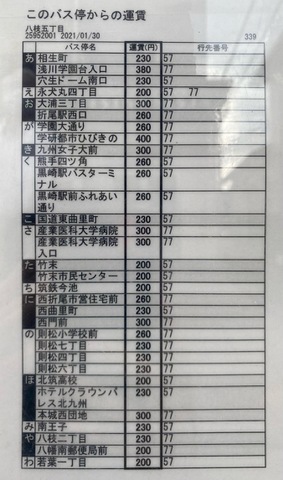 このバス停からの運賃
八枝五丁目
25952001 2021/01/30 339
バス停名 運賃(円) 行先番号
あ 相生町 230 57
浅川学園台入口 380 77
穴生ドーム南口 230 57
え 永犬丸四丁目 200 57 77
お 大浦三丁目 300 77
折尾駅西口 260 77
が 学園大通り 260 77
学研都市ひびきの 400 77
き 九州女子大前 300 77
く 熊手四ツ角 260 57
黒崎駅バスターミ 260 57
ナル
黒崎駅前ふれあい 260 57
通り
こ 国道東曲里町 230 57
さ 産業医科大学病院 300 77
産業医科大学病院 300 77
入口
た 竹末 200 57
竹末市民センター 200 57
ち 筑鉄今池 200 57
に 西折尾市営住宅前 260 77
西曲里町 230 57
西門前 300 77
の 則松小学校前 260 77
則松七丁目 230 77
則松四丁目 230 77
則松六丁目 230 77
ほ 北筑高校 200 57
ホテルクラウンパ 230 57
レス北九州
本城西団地 300 77
み 南王子 230 57
や 八枝二丁目 230 77
八幡南郵便局前 200 77
わ 若葉一丁目 200 57